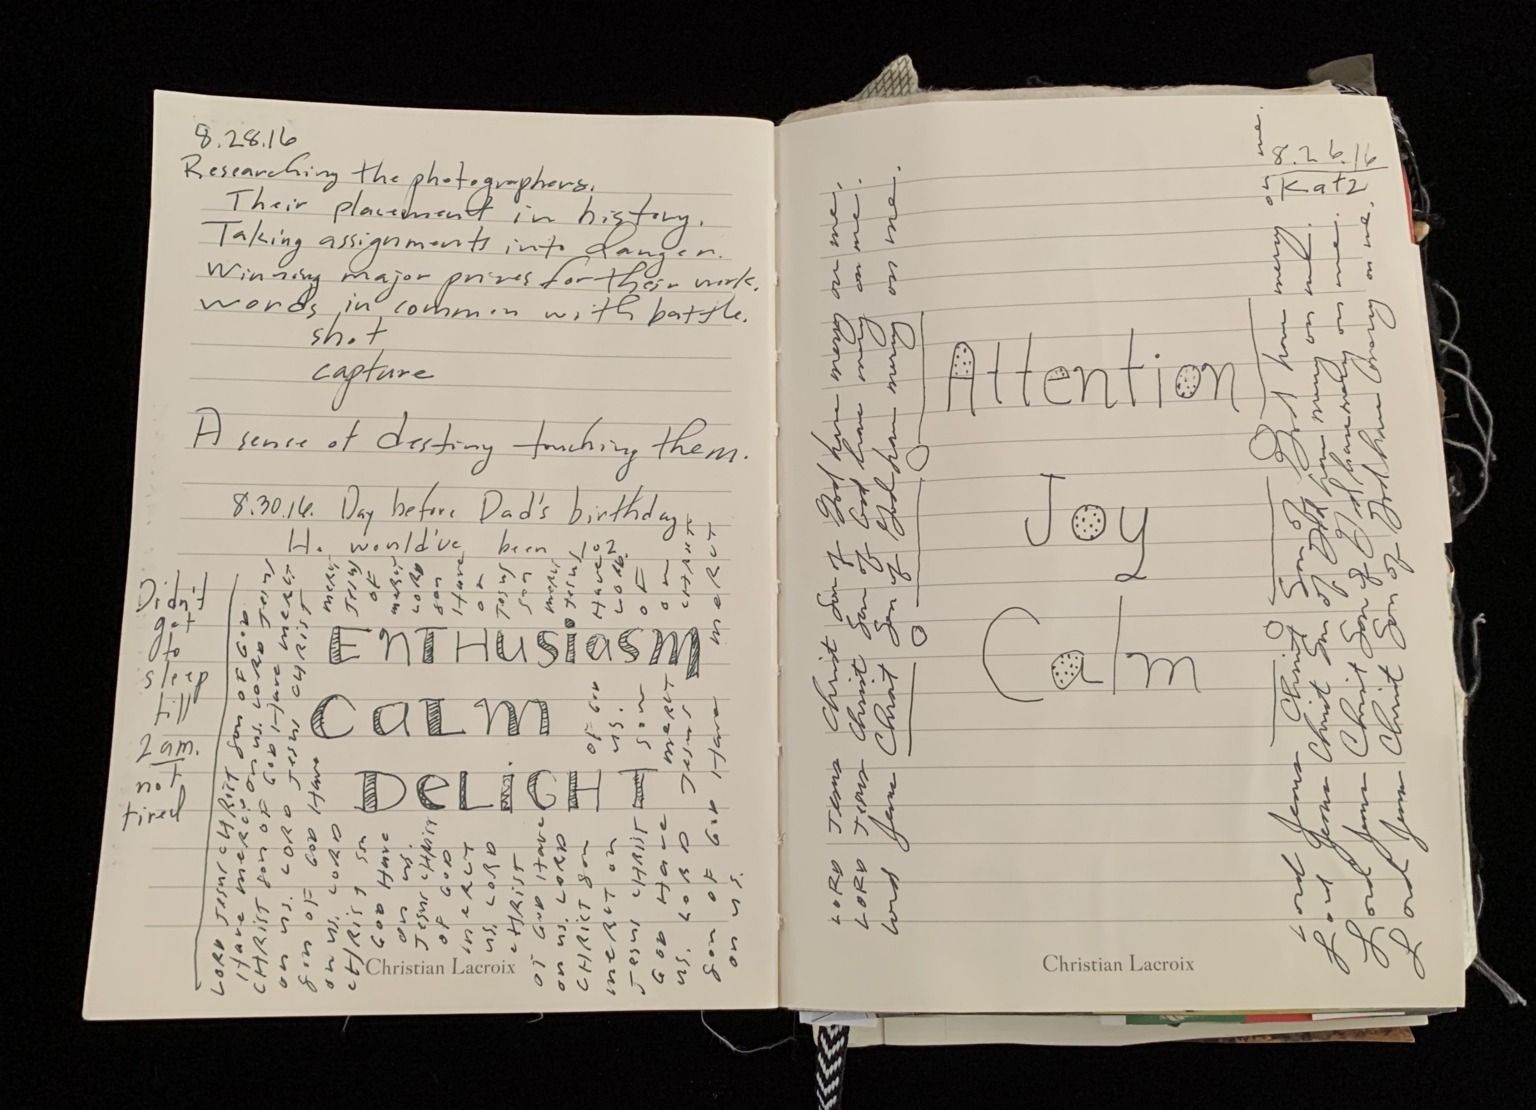 8.28.16
Researching the photographers.
Their placement in history.
Taking assignments into danger.
Winning major prizes for their work.
words in common with battle.
shot
capture
A sense of destiny touching them.
8.30.16. Day before Dad's birthday
H. would've been 102.
Didn't
get
to
sleep
till
2 am.
not
tired
EnTHusiasm
CaLm
DeLiGHT
LORD JESUS CHRIST Son OF GOD
Have mercy on us. LORD JESUS
CHRIST Son OF GOD Have mercy
on us. LORD JESUS CHRIST
Son OF GOD Have
mercy
on us. LORD
JESUS
CHRIST Son
OF
GOD Have
mercy
on us.
LORD
JESUS CHRIST
Son
OF GOD
Have
mercy
on
us. LORD
JESUS
CHRIST
Son
OF GOD Have
mercy
on us. LORD
JESUS
CHRIST Son
OF GOD
Have
mercy on
us.
LORD
JESUS CHRIST
Son
OF
GOD Have
mercy
on
us. LORD
JESUS
CHRIST
Son OF GOD Have
mercy
on us.
Christian Lacroix
8.26.16
Katz
LORD Jesus Christ Son of God have mercy on me.
LORD Jesus Christ Son of God have mercy on me.
Lord Jesus Christ Son of God have mercy on me.
Attention
Joy
Calm
Lord Jesus Christ Son of God have mercy on me.
Lord Jesus Christ Son of God have mercy on me.
Lord Jesus Christ Son of God have mercy on me.
Lord Jesus Christ Son of God have mercy on me.
Christian Lacroix